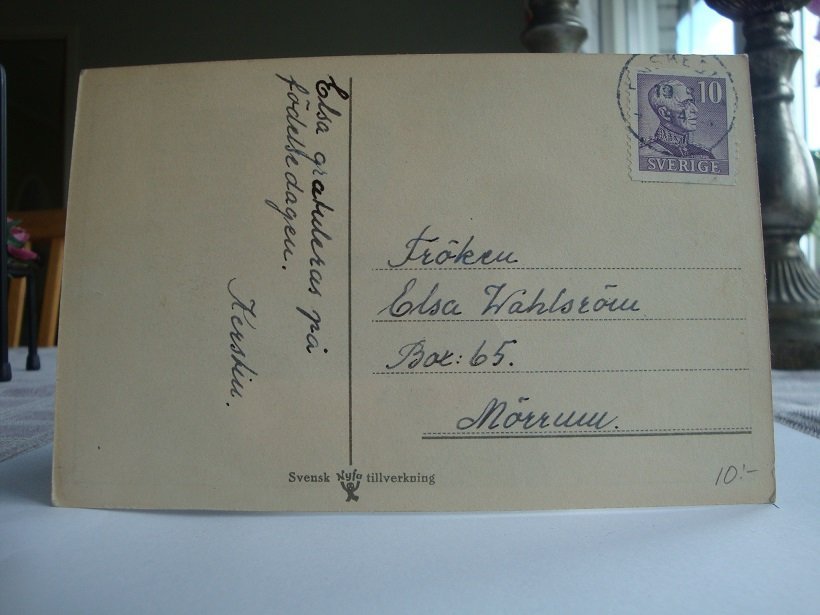 Elsa gratuleras på
födelsedagen.
Kerstin.
10
SVERIGE
Fröken
Elsa Wahlsröm
Box: 65.
Mörrum.
Svensk Nyfa tillverkning
10:-